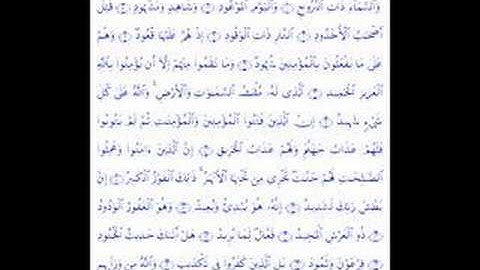 وَٱلسَّمَآءِ ذَاتِ ٱلْبُرُوجِ ۝ وَٱلْيَوْمِ ٱلْمَوْعُودِ ۝ وَشَاهِدٍ وَمَشْهُودٍ ۝ قُتِلَ
أَصْحَٰبُ ٱلْأُخْدُودِ ۝ ٱلنَّارِ ذَاتِ ٱلْوَقُودِ ۝ إِذْ هُمْ عَلَيْهَا قُعُودٌ ۝ وَهُمْ
عَلَىٰ مَا يَفْعَلُونَ بِٱلْمُؤْمِنِينَ شُهُودٌ ۝ وَمَا نَقَمُوا۟ مِنْهُمْ إِلَّآ أَن يُؤْمِنُوا۟ بِٱللَّهِ
ٱلْعَزِيزِ ٱلْحَمِيدِ ۝ ٱلَّذِى لَهُۥ مُلْكُ ٱلسَّمَٰوَٰتِ وَٱلْأَرْضِ ۚ وَٱللَّهُ عَلَىٰ كُلِّ
شَىْءٍ شَهِيدٌ ۝ إِنَّ ٱلَّذِينَ فَتَنُوا۟ ٱلْمُؤْمِنِينَ وَٱلْمُؤْمِنَٰتِ ثُمَّ لَمْ يَتُوبُوا۟
فَلَهُمْ عَذَابُ جَهَنَّمَ وَلَهُمْ عَذَابُ ٱلْحَرِيقِ ۝ إِنَّ ٱلَّذِينَ ءَامَنُوا۟ وَعَمِلُوا۟
ٱلصَّٰلِحَٰتِ لَهُمْ جَنَّٰتٌ تَجْرِى مِن تَحْتِهَا ٱلْأَنْهَٰرُ ۚ ذَٰلِكَ ٱلْفَوْزُ ٱلْكَبِيرُ ۝ إِنَّ
بَطْشَ رَبِّكَ لَشَدِيدٌ ۝ إِنَّهُۥ هُوَ يُبْدِئُ وَيُعِيدُ ۝ وَهُوَ ٱلْغَفُورُ ٱلْوَدُودُ
۝ ذُو ٱلْعَرْشِ ٱلْمَجِيدُ ۝ فَعَّالٌ لِّمَا يُرِيدُ ۝ هَلْ أَتَىٰكَ حَدِيثُ ٱلْجُنُودِ
۝ فِرْعَوْنَ وَثَمُودَ ۝ بَلِ ٱلَّذِينَ كَفَرُوا۟ فِى تَكْذِيبٍ ۝ وَٱللَّهُ مِن وَرَآئِهِم